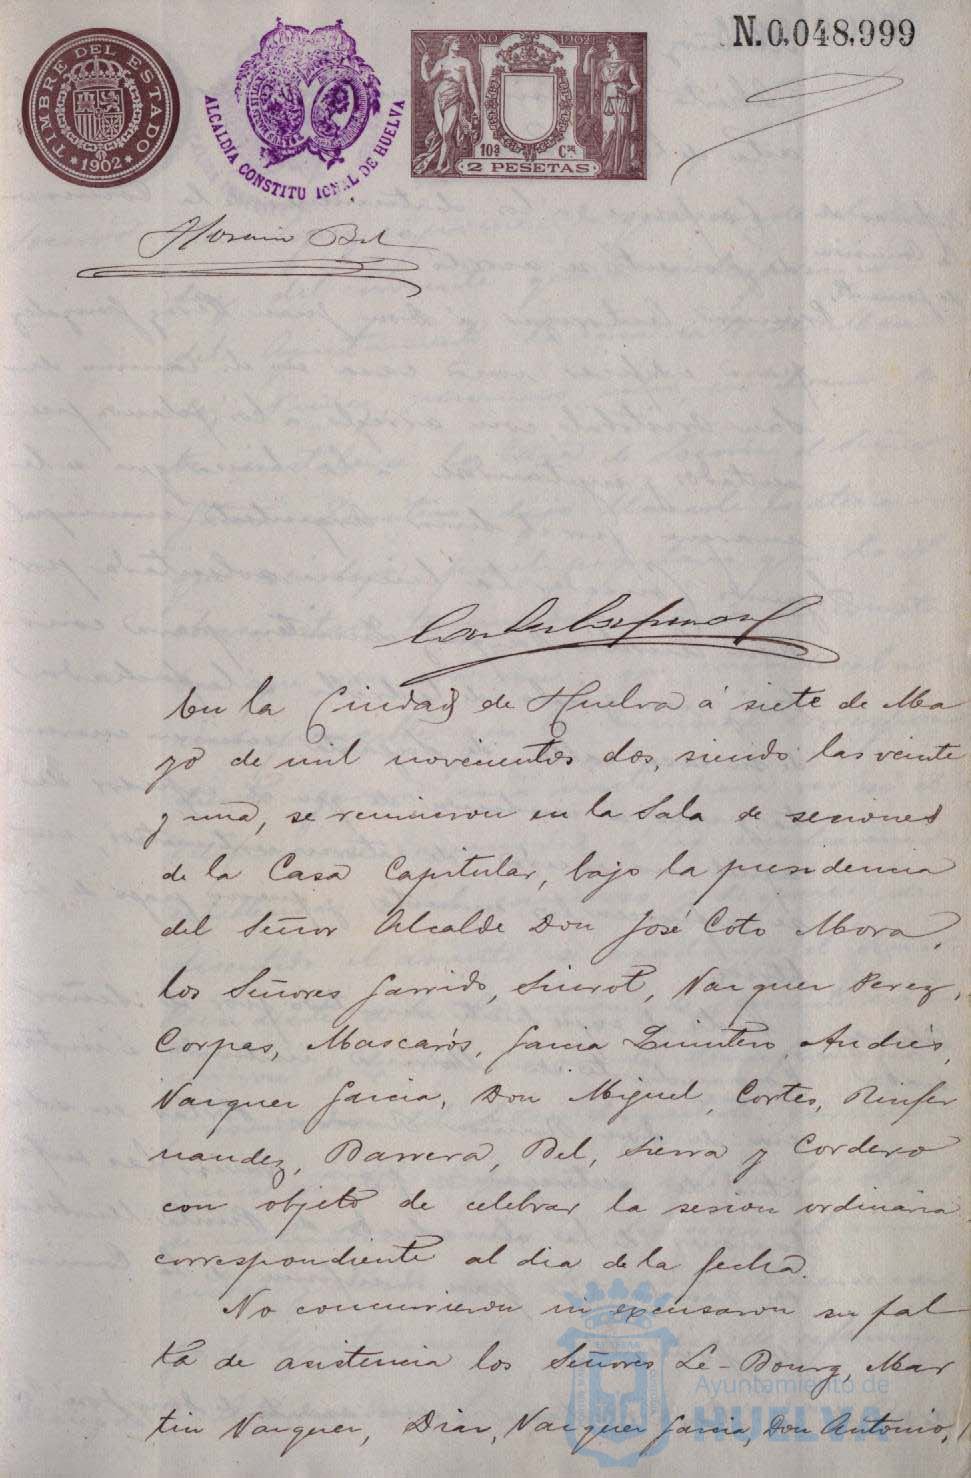 N.0,048,999
TIMBRE DEL ESTADO
* 1902 *
ALCALDIA CONSTITUCIONAL DE HUELVA
AÑO 1902
10ª Cˢᵉ
2 PESETAS
Bel
En la Ciudad de Huelva á siete de Ma
yo de mil novecientos dos, siendo las veinte
y una, se reunieron en la Sala de sesiones
de la Casa Capitular, bajo la presidencia
del Señor Alcalde Don José Coto Mora,
los Señores Garrido, Siurot, Vazquez Perez,
Corpas, Mascarós, Garcia Quintero, Andrés,
Vazquez Garcia, Don Miguel, Cortes, Rinfer
nandez, Barrera, Bel, Sierra y Cordero
con objeto de celebrar la sesion ordinaria
correspondiente al dia de la fecha.
No concurrieron ni excusaron su fal
ta de asistencia los Señores Le-Bourg, Mar
tin Vazquez, Diaz, Vazquez Garcia, Don Antonio,
Ayuntamiento de
HUELVA